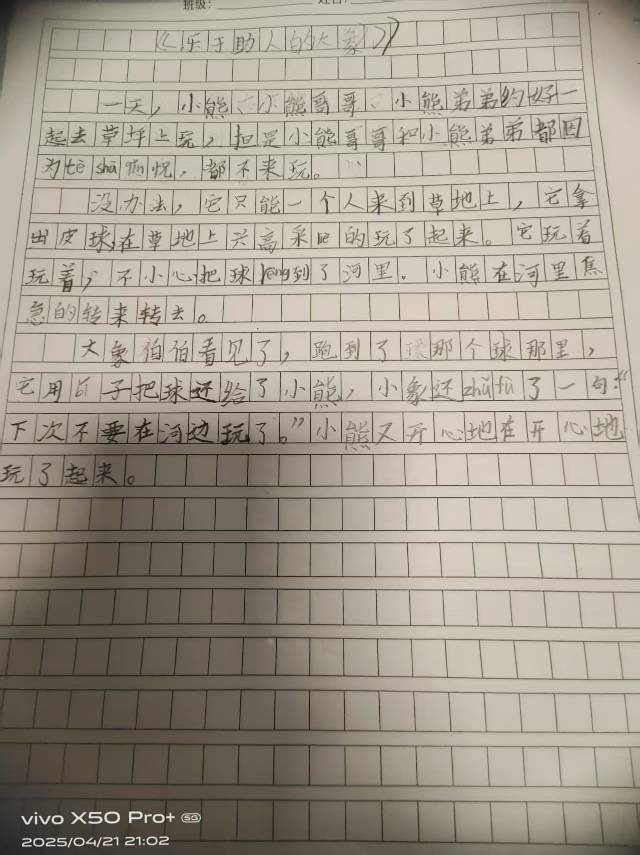 班级：
《乐于助人的大象》
一天，小熊、小熊哥哥、小熊弟弟约好一
起去草坪上玩，但是小熊哥哥和小熊弟弟都因
为tè shū 情况，都不来玩。
没办法，它只能一个人来到草地上，它拿
出皮球在草地上兴高采le的玩了起来。它玩着
玩着，不小心把球rēng到了河里。小熊在河里焦
急的转来转去。
大象伯伯看见了，跑到了那个球那里，
它用 子把球还给了小熊，小象还zhǔ fù了一句：“
下次不要在河边玩了。”小熊又开心地在开心地
玩了起来。
vivo X50 Pro+ 5G
2025/04/21 21:02